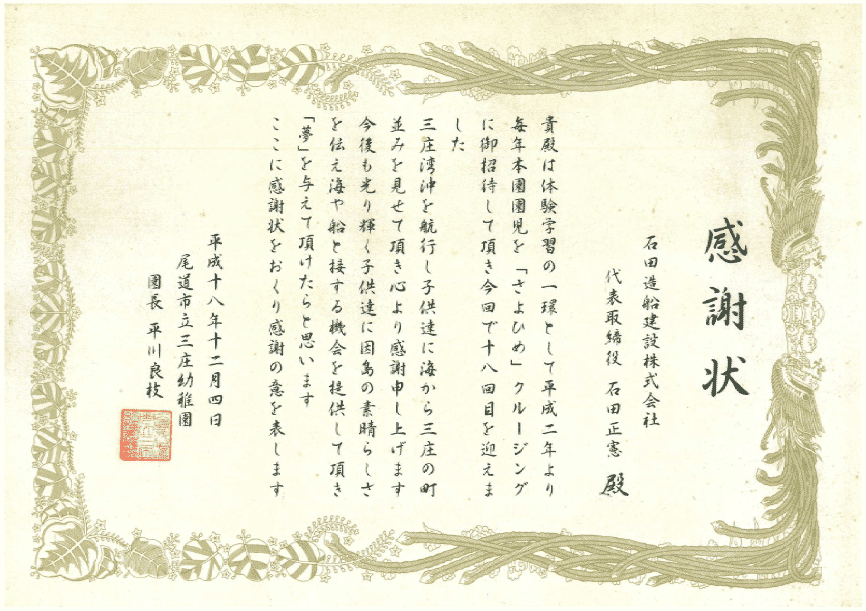 感謝状
石田造船建設株式会社
代表取締役 石田正憲 殿
貴殿は体験学習の一環として平成二年より
毎年本園園児を「さよひめ」クルージング
に御招待して頂き今回で十八回目を迎えま
した
三庄湾沖を航行し子供達に海から三庄の町
並みを見せて頂き心より感謝申し上げます
今後も光り輝く子供達に因島の素晴らしさ
を伝え海や船と接する機会を提供して頂き
「夢」を与えて頂けたらと思います
ここに感謝状をおくり感謝の意を表します
平成十八年十二月四日
尾道市立三庄幼稚園
園長 平川良枝